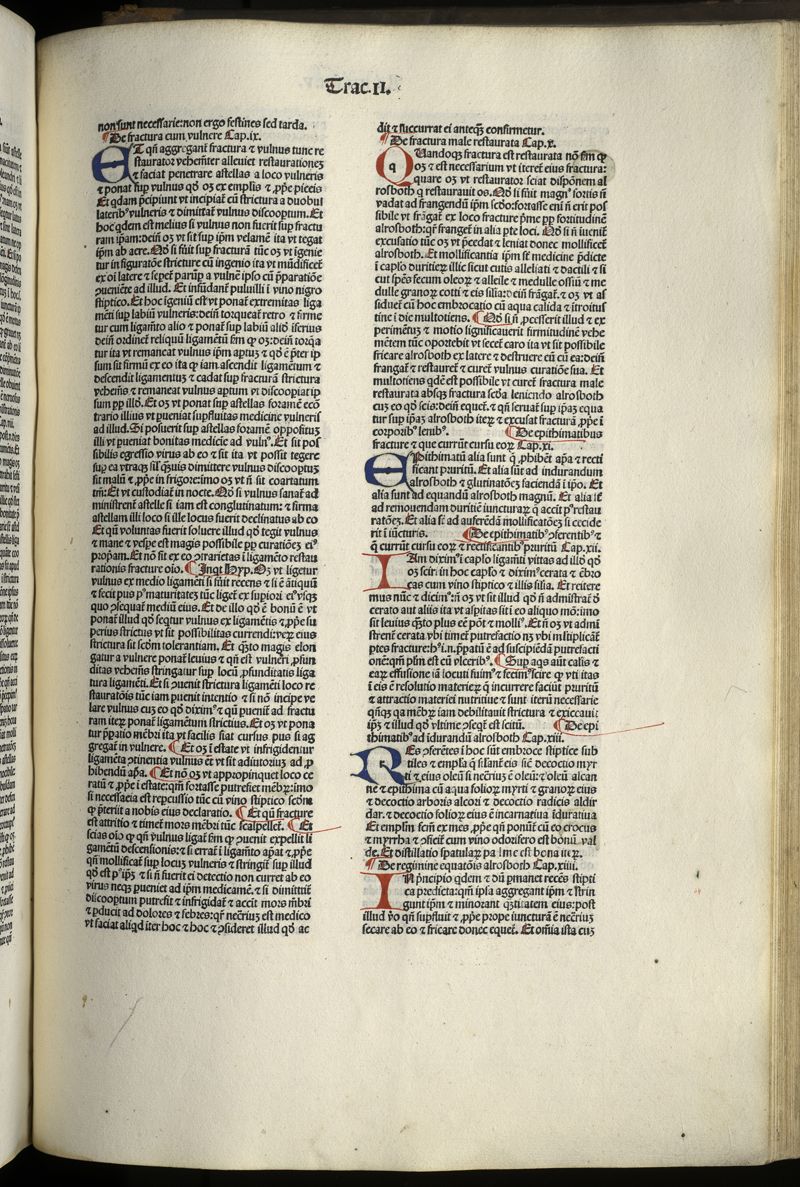 Trac.II.
non sunt necessarie: non ergo festines sed tarda.
¶De fractura cum vulnere Cap.ix.
ET qñ aggregant̃ fractura ⁊ vulnus tunc re
staurator vehemẽter alleuiet restaurationeʒ
⁊ faciat penetrare astellas a loco vulneris
⁊ ponat sup̃ vulnus qđ oʒ ex emplis ⁊ ꝓpe piceis
Et qdam p̃cipiunt vt incipiat cũ strictura a duobus
laterib⁹ vulneris ⁊ dimittat̃ vulnus discooptum. Et
hoc qdem est melius si vulnus non fuerit sup̃ fractu
ram ip̃am: dein̄ oʒ vt sit sup̃ ip̃m velamẽ ita vt tegat
ip̃m ab aere. Qđ si fuit sup̃ fracturã tũc oʒ vt ĩgenie
tur in figuratõe stricture cũ ingenio ita vt mũdificet̃
ex oĩ latere ⁊ sepet̃ parũp̃ a vulnẽ ip̃so cũ p̃paratiõe
ꝯueniẽte ad illud. Et infũdant̃ puluilli ĩ vino nigro
stiptico. Et hoc igeniũ est vt ponat̃ extremitas liga
mẽti sup̃ labiũ vulneris: dein̄ torqueat̃ retro ⁊ firme
tur cum ligam̃to alio ⁊ ponat̃ sup̃ labiũ aliđ iferius
dein̄ ordinet̃ reliquũ ligamẽti ẜm ꝙ oʒ: dein̄ torq̃a
tur ita vt remaneat vulnus ip̃m aptuʒ ⁊ qđ ẽ p̃ter ip
sum sit firmũ ex eo ita ꝙ iam ascendit ligamẽtum ⁊
descendit ligamentuʒ ⁊ cadat sup̃ fracturã strictura
vehem̃s ⁊ remaneat vulnus aptum vt discoopiat̃ ip
sum ꝑꝑ illđ. Et oʒ vt ponat̃ sup̃ astellas foramẽ ecõ
trario illius vt ꝓueniat sup̃fluitas medicine vulneris
ad illud. Si posuerit sup̃ astellas foramẽ oppositũ
illi vt ꝓueniat bonitas medicie ad vuln⁹. Et sit pos
sibilis egressio virus ab eo ⁊ sit ita vt possit tegere
sup̃ ea vtraqʒ sil̃ quis dimittere vulnus discooptũ
sit malũ ⁊ ꝓpe in frigore: imo oʒ vt nõ sit coartatum
tm̃: Et vt custodiat̃ in nocte. Qđ si vulnus sanat̃ ad
ministrent̃ astelle si iam est conglutinatum: ⁊ firma
astellam illi loco si ille locus fuerit declinatus ab eo
Et quãdo voluntas fuerit soluere illud qđ tegit vulnus
⁊ mane ⁊ vesp̃e est magis possibile ꝑꝑ curationẽ ei⁹
ꝓpriam. Et nõ sit ex eo ꝯtrarietas ĩ ligamẽto restau
rationis fracture oĩo. ¶Inqt Hyp. Oʒ vt ligetur
vulnus ex medio ligamẽti si fuit recens ⁊ si ẽ ãtiquũ
⁊ fecit pus p⁹ maturitates tũc liget̃ ex supiori ei⁹vsqʒ
quo ꝯsequat̃ mediũ eius. Et de illo qđ ẽ bonũ ẽ vt
ponat̃ illud qđ seqtur vulnus ex ligamẽtis ⁊ ꝓpe su
perius strictus vt sit possibilitas currendi: veʒ eius
strictura sit scđm tolerantiam. Et qʒto magis elon
gatur a vulnere ponat̃ leuius ⁊ qñ est vulneri ꝓfun
ditas vehem̃s stringatur sup̃ locũ ꝓfunditatis liga
tura ligamẽti. Et si ꝯuenit strictura ligamẽti loco re
stauratiõis tũc iam ꝓuenit intentio ⁊ si nõ incipe ve
lare vulnus cuʒ eo qđ diximꝰ ⁊ qñ ꝓuenit ad fractu
ram iteʒ ponat̃ ligamẽtum strictius. Et oʒ vt pona
tur p̃patio mẽbri ita vt facilis fiat cursus pus si ag
gregat̃ in vulnere. ¶Et oʒ ĩ estate vt infrigidentur
ligamẽta ꝯtinentia vulnus et vt sit adiutoriuʒ ad ꝓ
hibendũ ap̃a. ¶Et nõ oʒ vt appropinquet loco ce
ratũ ⁊ ꝓpe ĩ estate: qm̃ fortasse putrefiet mẽbʒ: imo
si necessaria est repcussio tũc cũ vino stiptico scđm
ꝙ p̃terijt a nobis eius declaratio. ¶Et qñ fracture
est attritio ⁊ timet̃ mors mẽbri tũc scalpellet̃. ¶Et
scias oĩo ꝙ qñ vulnus ligat̃ ẜm ꝙ ꝯuenit expellit li
gamẽtũ descensionis: ⁊ si errat̃ ĩ ligam̃to ap̃at ⁊ ꝓpe
qñ mollificat̃ sup̃ locuʒ vulneris ⁊ stringit̃ sup̃ illud
qđ est p⁹ ip̃ʒ ⁊ si ñ fuerit ei detectio non curret ab eo
virus neqʒ ꝓueniet ad ip̃m medicamẽ. ⁊ si dimittit̃
discooptum putrefit ⁊ infrigidat̃ ⁊ accit mors mẽbri
⁊ ꝓducit ad dolores ⁊ febres: qr̃ necr̃ius est medico
vt faciat aliqđ iter hoc ⁊ hoc ⁊ ꝯsideret illud qđ ac
dit ⁊ succurrat ei anteqʒ confirmetur.
¶De fractura male restaurata Cap.x.
QUandoqʒ fractura est restaurata nõ ẜm ꝙ
oʒ ⁊ est necessarium vt iteret̃ eius fractura:
quare oʒ vt restaurator sciat dispõnem al
rosboth q̃ restaurauit os. Qđ si fuit magn⁹ fortis nõ
vadat ad frangendũ ip̃m scđo: fortasse eni ñ erit pos
sibile vt frãgat̃ ex loco fracture p̃me ꝑꝑ fortitudinẽ
alrosboth: qr̃ franget̃ in alia pte loci. Qđ si ñ iuenit̃
excusatio tũc oʒ vt p̃cedat ⁊ leniat donec mollificet̃
alrosboth. Et mollificantia ip̃m sũt medicine p̃dicte
ĩ caplo duritieʒ illic sicut cutis alleliati ⁊ dactili ⁊ si
cut sp̃es fecum oleoʒ ⁊ alleile ⁊ medulle ossiũ ⁊ me
dulle granoʒ cotti ⁊ eis silia: dein̄ frãgat̃. ⁊ oʒ vt as
siduet̃ cũ hoc embrocatio cũ aqua calida ⁊ itroitus
tine ĩ die multotiens. ¶Qđ si ñ ꝓcesserit illud ⁊ ex
perimẽtuʒ ⁊ motio significauerit firmitudinẽ vehe
mẽtem tũc oportebit vt secet̃ caro ita vt sit possibile
fricare alrosboth ex latere ⁊ destruere cũ cũ ea: dein̄
frangat̃ ⁊ restauret̃ ⁊ curet̃ vulnus curatiõe sua. Et
multotiens qdẽ est possibile vt curet̃ fractura male
restaurata absqʒ fractura scđa leniendo alrosboth
cuʒ eo qđ scis: dein̄ equet̃. ⁊ qñ seruat̃ sup̃ ip̃aʒ equa
tur sup̃ ip̃aʒ alrosboth iteʒ ⁊ excusat̃ fractura ꝓpe ĩ
corporib⁹ lenib⁹. ¶De epithimatibus
fracture ⁊ que currũt cursu eoʒ Cap.xi.
EPithimatũ alia sunt q̃ ꝓhibẽt ap̃a ⁊ recti
ficant pruritũ. Et alia sũt ad indurandum
alrosboth ⁊ glutinatõeʒ faciendã ĩ ip̃o. Et
alia sunt ad equandũ alrosboth magnũ. Et alia sũt
ad remouendam duritiẽ iuncturaʒ q̃ accit p⁹ restau
ratõeʒ. Et alia sũt ad auferẽdã mollificatõeʒ si ceciderit
rit ĩ iũcturis. ¶De epithimatib⁹ ꝯferentib⁹ ⁊
q̃ currũt cursu eoʒ ⁊ rectificantib⁹ pruritũ Cap.xii.
IAm diximꝰ ĩ caplo ligamẽti vittas ad illđ qđ
oʒ scir̃: in hoc caplo ⁊ diximꝰ cerata ⁊ ẽbro
cas cum vino stiptico ⁊ illis silia. Et reitere
mus nũc ⁊ dicimꝰ: ñ oʒ vt sit illud qđ ñ admistrat̃ đ
cerato aut aliis ita vt aspitas siti eo aliquo mõ: imo
sit leuius qʒto plus eẽ põt ⁊ molliꝰ. Et ñ oʒ vt admi
strent̃ cerata vbi timet̃ putrefactio nʒ vbi ĩstiplicãt̃
ptes fracture: h⁹ i.n. p̃patũ ẽ ad suscipiẽdã putrefacti
onẽ: qm̃ plm̃ est cũ vlcerib⁹. ¶Sup̃ aqs aũt calis ⁊
eaʒ effusione iã locuti fuimꝰ ⁊ fecimꝰ scire ꝙ vti itas
ĩ eis ẽ resolutio materieʒ q̃ incurrere faciũt pruritũ
⁊ attractio materiei nutritiue ⁊ sunt iterũ necessarie
qñqʒ qa mẽbʒ iam debilitauit strictura ⁊ exiccauit
ip̃ʒ ⁊ illud qđ vltime ꝯseqt̃ est scitũ. ¶De epi
thimatib⁹ ad idurandũ alrosboth Cap.xiii.
REs ꝯferẽtes ĩ hoc sũt embroce stiptice sub
tiles ⁊ empla q̃ silant̃ eis sic̃ decoctio myr
ti ⁊ eius oleũ si necr̃ius ẽ oleũ: ⁊ oleũ alcan
ne ⁊ epithima cũ aqua folioʒ myrti ⁊ granoʒ eius
⁊ decoctio arboris alcori ⁊ decoctio radicis aldir
dar. ⁊ decoctio folioʒ eius ẽ incarnatiua iduratiua
Et emplm̃ fcm̃ ex mes ꝓpe qñ ponũt̃ cũ eo crocus
⁊ myrrha ⁊ ꝯficit̃ cum vino odorifero est bonũ val
de. Et distillatio spatulaʒ palme est bona iteʒ.
¶De regimine equatõis alrosboth Cap.xiiii.
IN p̃ncipio qdem ⁊ dũ ꝑmanet recẽs stipti
ca predicta: qm̃ ipsa aggregant ip̃m ⁊ strin
gunt ip̃m ⁊ minorant qʒtitatem eius: post
illud ṽo qñ supfluit ⁊ ꝓpe prope iuncturã ẽ necr̃iuʒ
secare ab eo ⁊ fricare donec equet̃. Et oĩa ista cuʒ